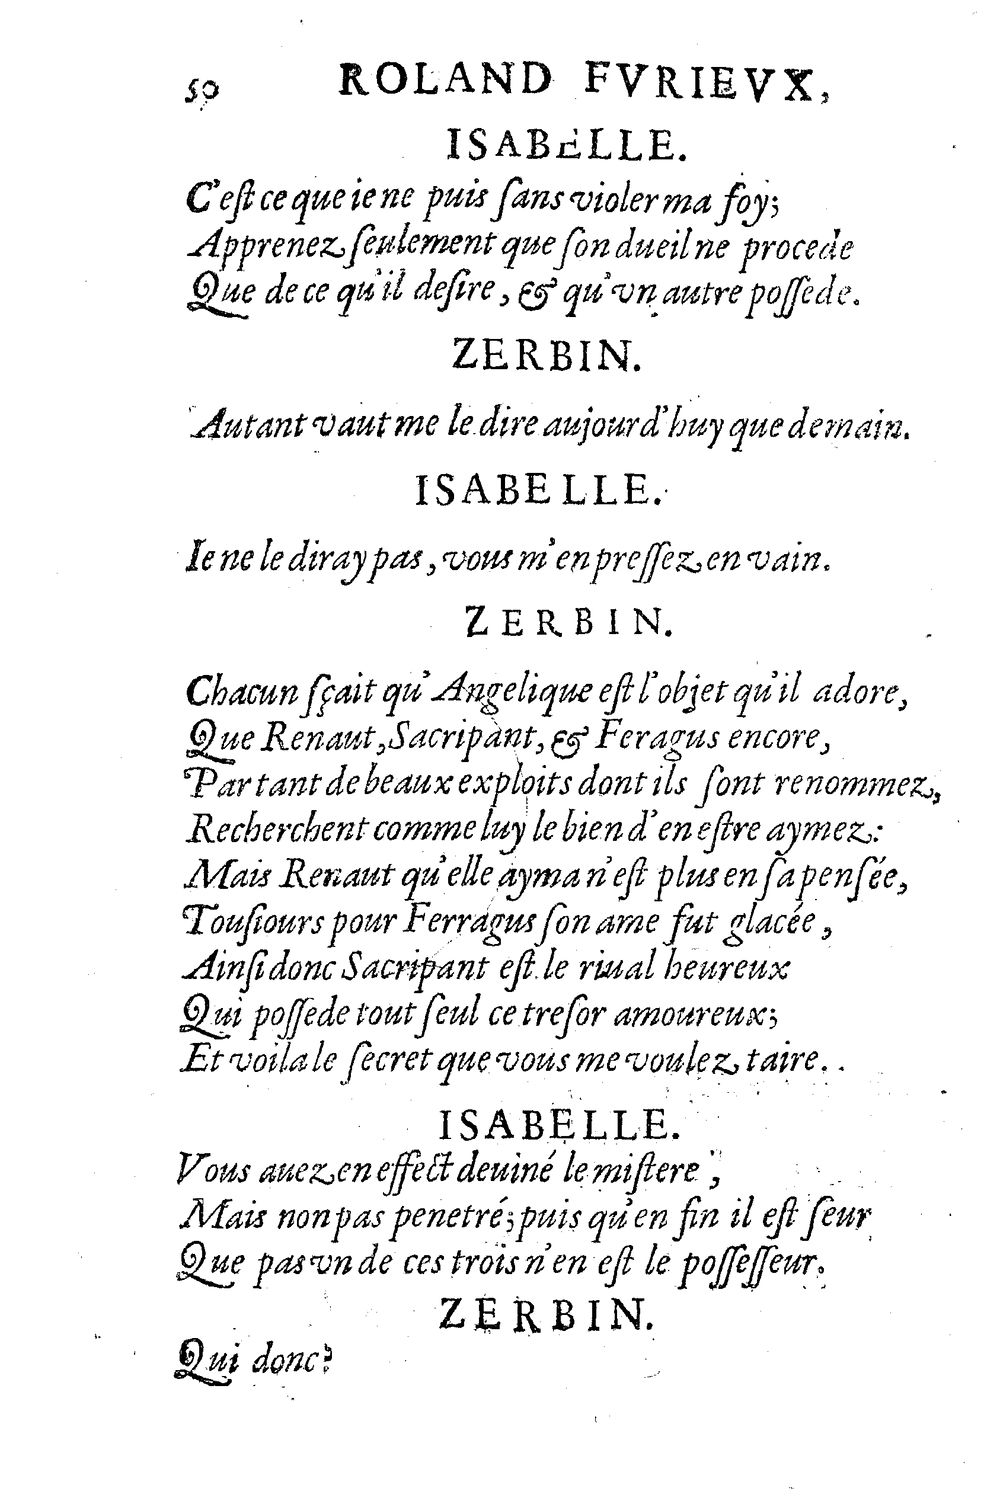 50 ROLAND FVRIEVX,
ISABELLE.
C'eſt ce que ie ne puis ſans violer ma foy;
Apprenez ſeulement que ſon dueil ne procede
Que de ce qu'il deſire, & qu'vn autre poſſede.
ZERBIN.
Autant vaut me le dire aujourd'huy que demain.
ISABELLE.
Ie ne le diray pas, vous m'en preſſez en vain.
ZERBIN.
Chacun ſçait qu'Angelique eſt l'objet qu'il adore,
Que Renaut, Sacripant, & Feragus encore,
Par tant de beaux exploits dont ils ſont renommez,
Recherchent comme luy le bien d'en eſtre aymez:
Mais Renaut qu'elle ayma n'eſt plus en ſa penſée,
Touſiours pour Ferragus ſon ame fut glacée,
Ainſi donc Sacripant eſt le riual heureux
Qui poſſede tout ſeul ce treſor amoureux;
Et voila le ſecret que vous me voulez taire.
ISABELLE.
Vous auez en effect deuiné le miſtere,
Mais non pas penetré; puis qu'en fin il eſt ſeur
Que pas vn de ces trois n'en eſt le poſſeſſeur.
ZERBIN.
Qui donc?